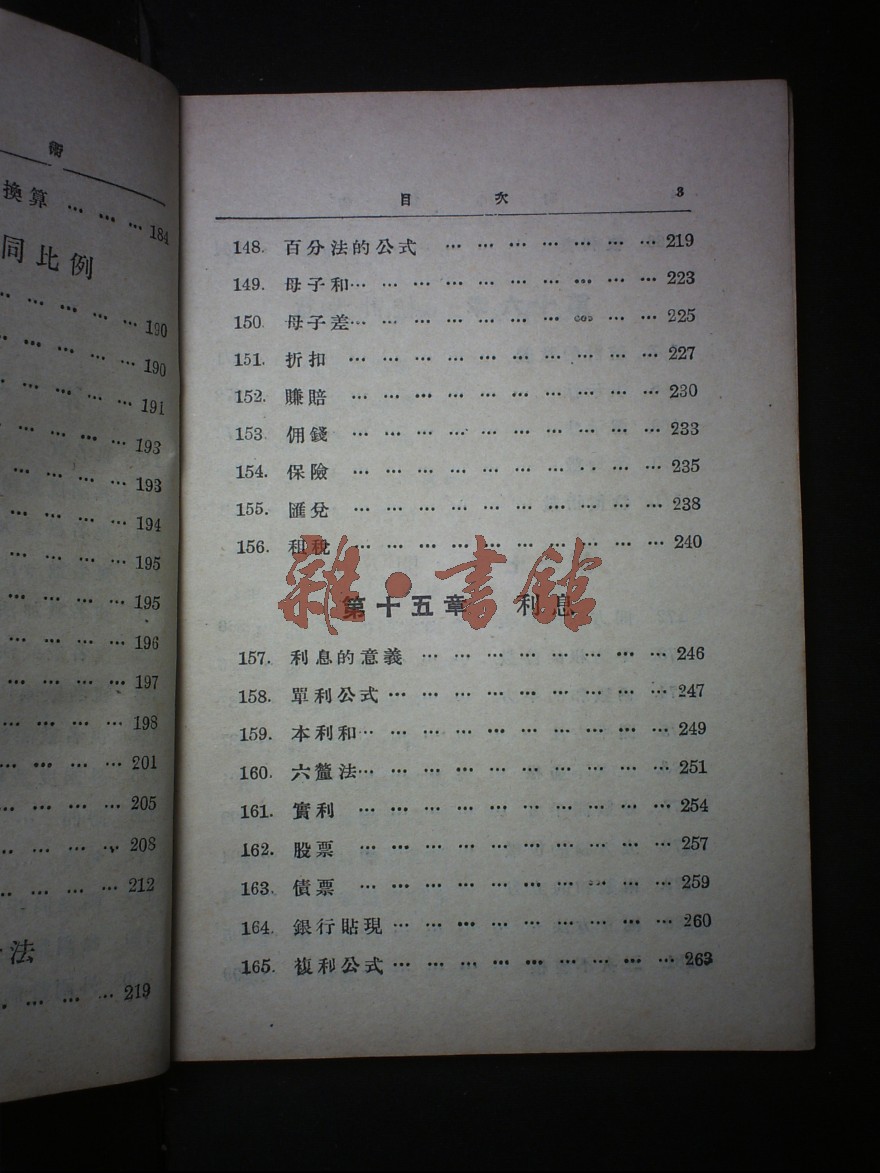 術
換算 … … … 184
同比例
… … … … 190
… … … … 190
… … … … 191
… … … … 193
… … … … 193
… … … … 194
… … … … 195
… … … … 195
… … … … 196
… … … … 197
… … … … 198
… … … … 201
… … … … 205
… … … … 208
… … … … 212
法
… … … … 219
目 次 3
148. 百分法的公式 … … … … … … … 219
149. 母子和… … … … … … … … … … 223
150. 母子差… … … … … … … … … … 225
151. 折扣 … … … … … … … … … … 227
152. 賺賠 … … … … … … … … … … 230
153. 佣錢 … … … … … … … … … … 233
154. 保險 … … … … … … … … … … 235
155. 匯兌 … … … … … … … … … … 238
156. 租稅 … … … … … … … … … … 240
雜·書館
第十五章 利息
157. 利息的意義 … … … … … … … … 246
158. 單利公式… … … … … … … … … 247
159. 本利和… … … … … … … … … … 249
160. 六釐法… … … … … … … … … … 251
161. 實利 … … … … … … … … … … 254
162. 股票 … … … … … … … … … … 257
163. 債票 … … … … … … … … … … 259
164. 銀行貼現… … … … … … … … … 260
165. 複利公式… … … … … … … … … 263